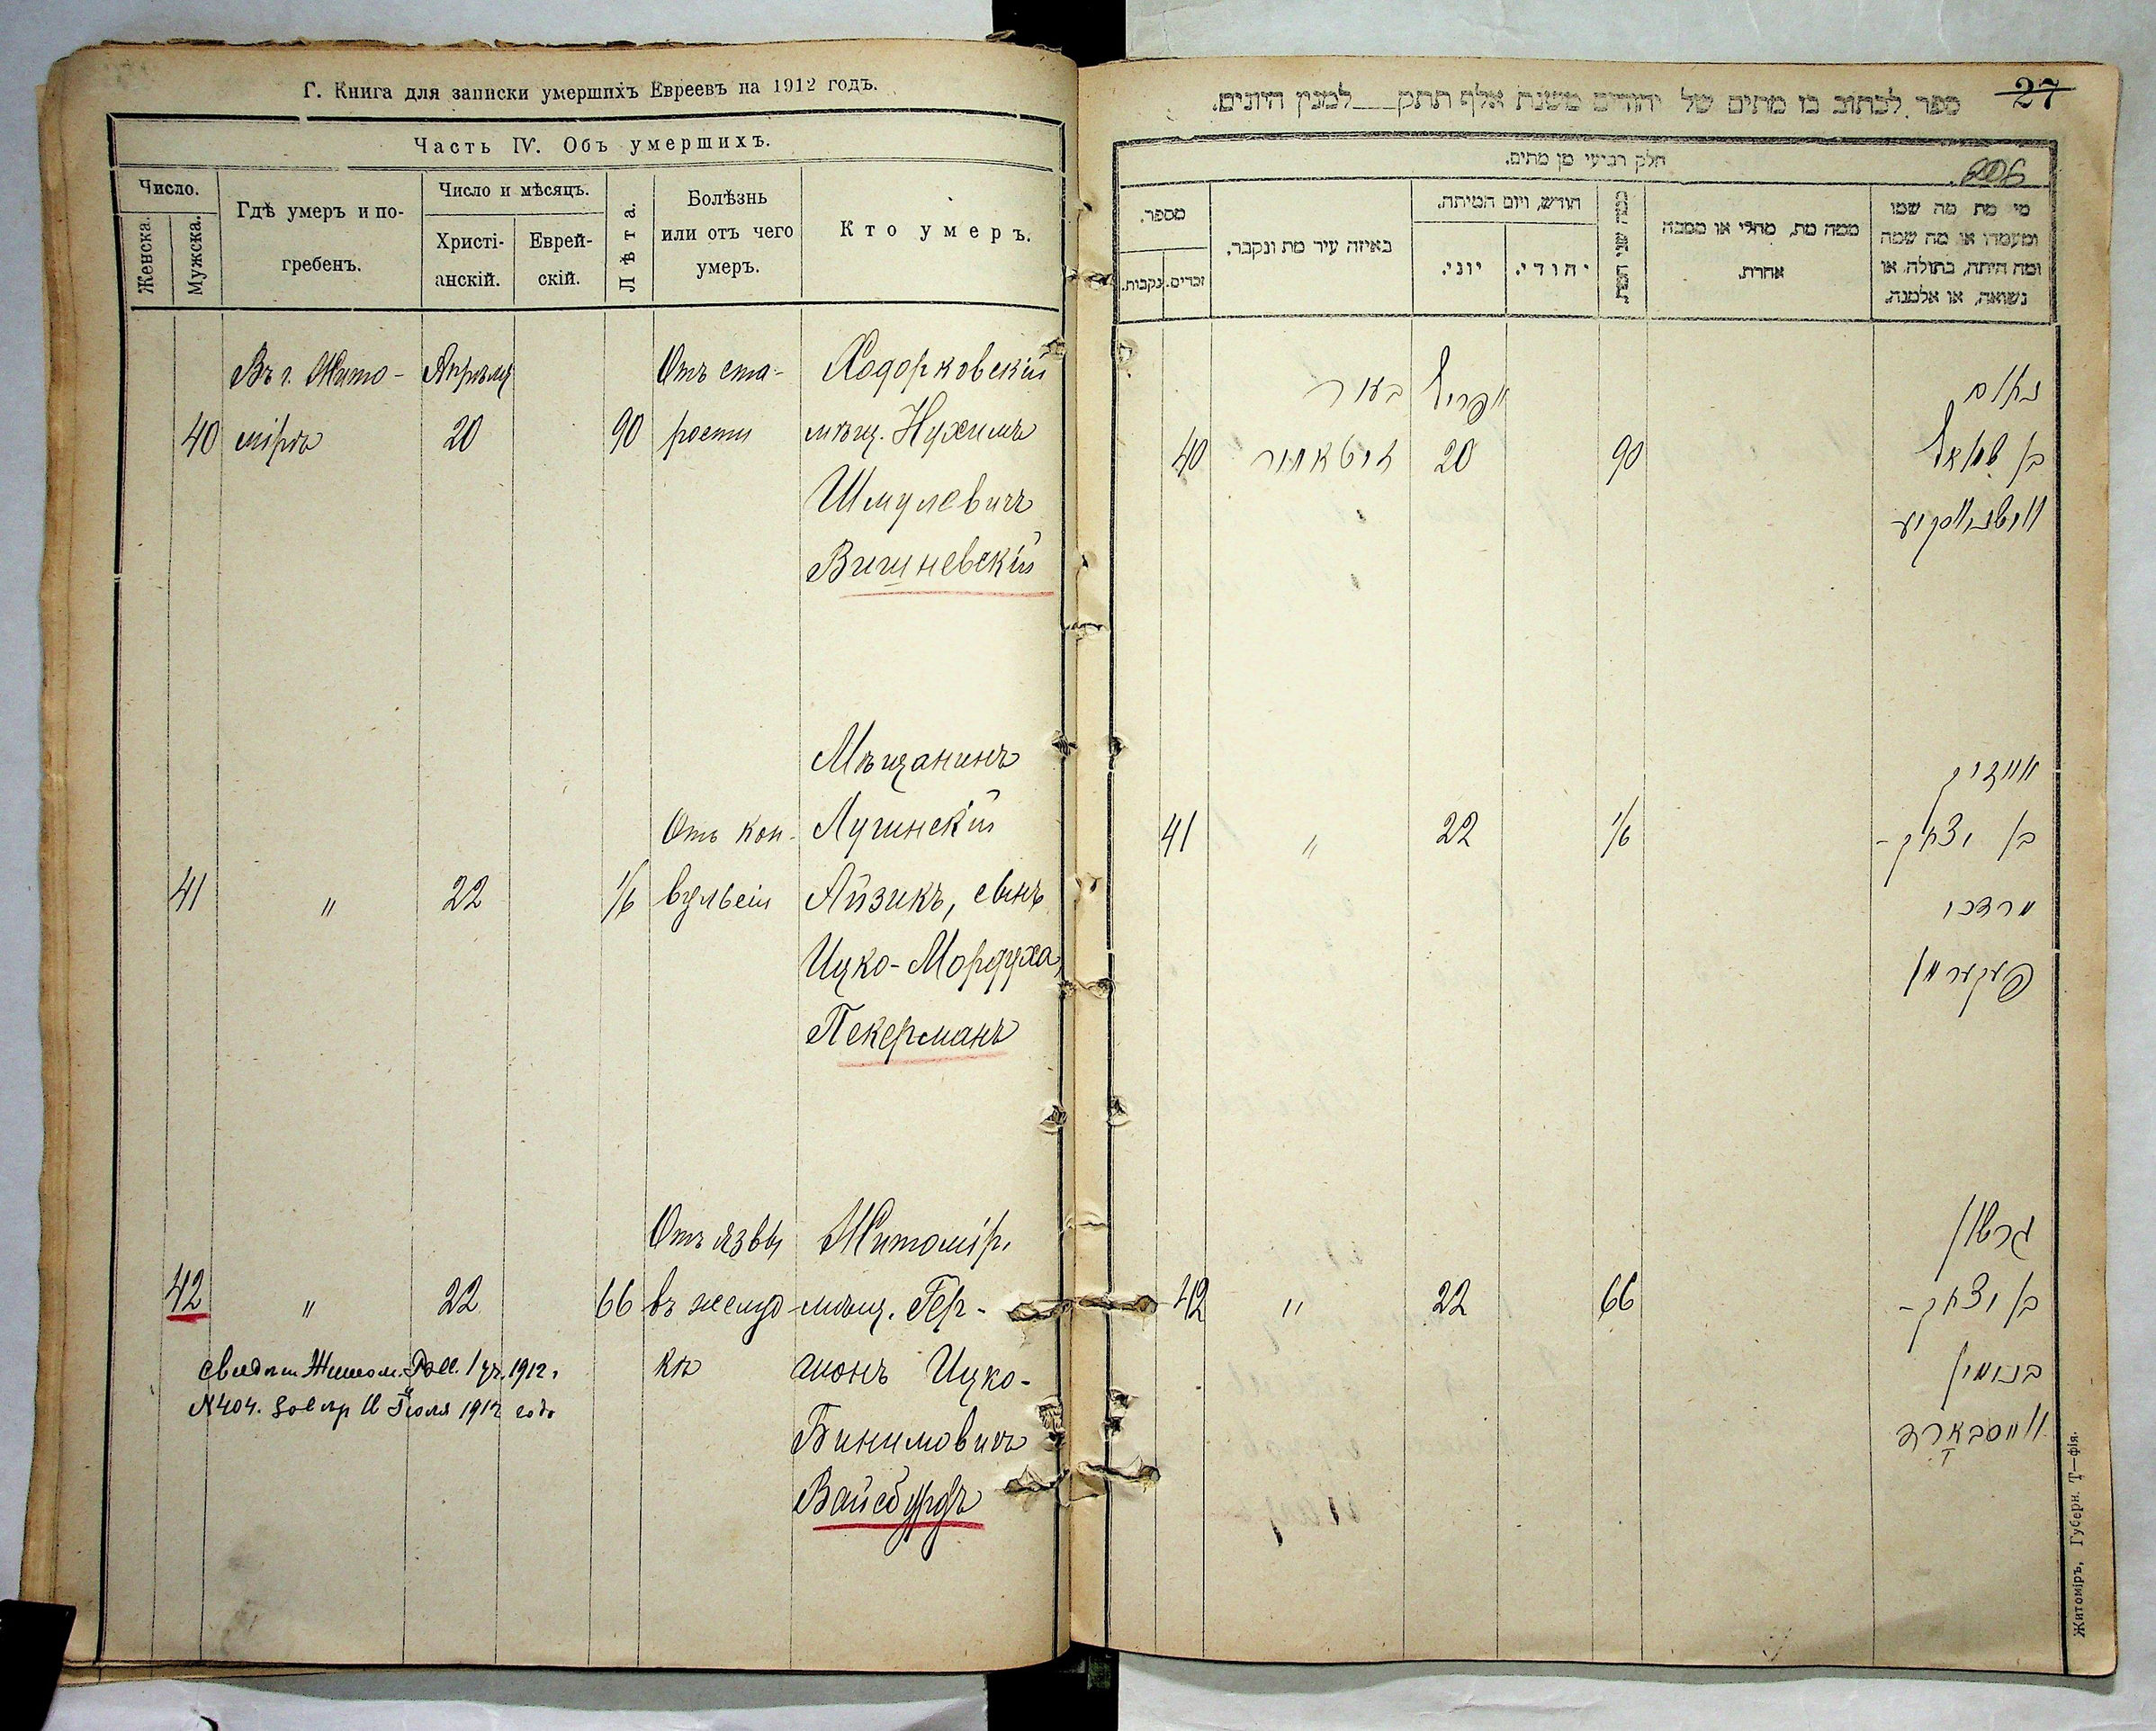 Г. Книга для записки умершихъ Евреевъ на 1912 годъ.
Часть IV. Объ умершихъ.
Число.
Женска.
Мужска.
Гдѣ умеръ и по-
гребенъ.
Число и мѣсяцъ.
Христі-
анскій.
Еврей-
скій.
Лѣта.
Болѣзнь
или отъ чего
умеръ.
Кто умеръ.
Въ г. Жито- Апрѣля Отъ ста- Ходорковскій
40 мірѣ 20 90 рости мѣщ. Нухимъ
Шмулевичъ
Вишневскій
Мѣщанинъ
Отъ кон- Лугинскій
41 " 22 1/6 вульсіи Айзикъ, сынъ
Ицко-Мордуха
Пекерманъ
Отъ язвы Житомір.
42 " 22 66 въ желуд мѣщ. Гер-
кѣ шонъ Ицко-
Бинимовичъ
Вайсбурдъ
1912 г
№ 404. Іюля 1912 года
27
ספר לכתוב בו מתים של יהודים משנת אלף תתק למנין היונים.
206
חלק רביעי מן מתים.
מי מת מה שמו
ומעמדו או מה שמה
ומה היתה, בתולה או
נשואה, או אלמנה.
ממה מת, מחלי או מסבה
אחרת.
כמה שני המת.
חודש, ויום המיתה.
יהודי.
יוני.
באיזה עיר מת ונקבר.
מספר.
זכרים.
נקבות.
נחום
אפריל
בעיר
בן שמואל
90
20
זיטאמיר
40
ווישנעווסקי
אייזיק
בן יצחק-
1/6
22
"
41
מרדכי
פעקערמאן
גרשון
בן יצחק-
66
22
"
42
בנימין
ווייסבארד
Житоміръ, Губерн. Т—фія.